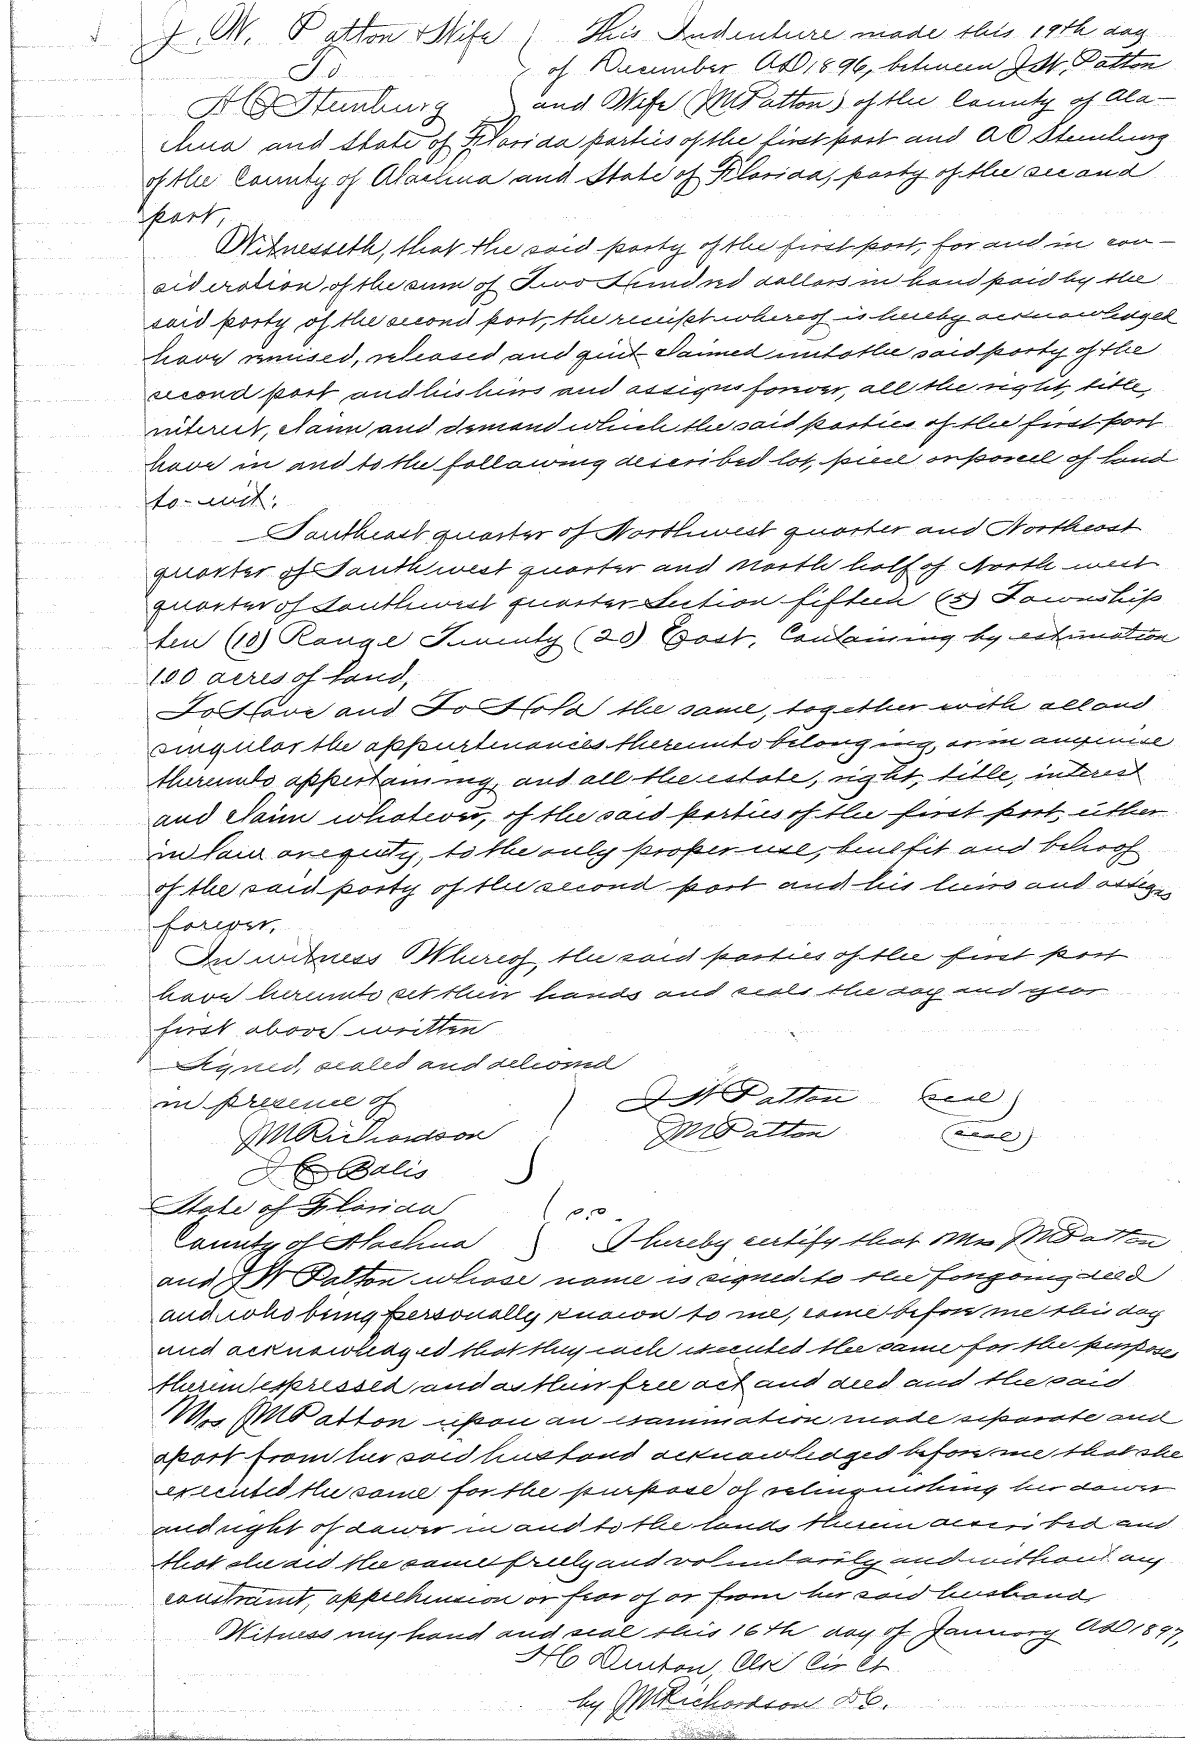 J. W. Patton & Wife
To
A C Stenburg
This Indenture made this 19th day
of December AD 1896, between J W. Patton
and Wife (M Patton) of the County of Ala-
chua and State of Florida parties of the first part and A C Stenburg
of the County of Alachua and State of Florida, party of the second
part,
Witnesseth, that the said party of the first part, for and in con-
sideration of the sum of Two Hundred dollars in hand paid by the
said party of the second part, the receipt whereof is hereby acknowledged
have remised, released and quit claimed unto the said party of the
second part and his heirs and assigns forever, all the right, title,
interest, claim and demand which the said parties of the first part
have in and to the following described lot, piece or parcel of land
to-wit:
Southeast quarter of Northwest quarter and Northeast
quarter of Southwest quarter and North half of North west
quarter of Southwest quarter Section fifteen (15) Township
ten (10) Range Twenty (20) East, Containing by estimation
100 acres of land,
To Have and To Hold the same, together with all and
singular the appurtenances thereunto belonging, or in anywise
thereunto appertaining, and all the estate, right, title, interest
and claim whatever, of the said parties of the first part, either
in law or equity, to the only proper use, benefit and behoof
of the said party of the second part and his heirs and assigns
forever,
In witness Whereof, the said parties of the first part
have hereunto set their hands and seals the day and year
first above written
Signed, sealed and delivered
in presence of
J W Patton (seal)
J M Richardson
M Patton (seal)
State of Florida
S.S.
County of Alachua
I hereby certify that Mrs M Patton
and J W Patton whose name is signed to the foregoing deed
and who being personally known to me, came before me this day
and acknowledged that they each executed the same for the purposes
therein expressed and as their free act and deed and the said
Mrs M Patton upon an examination made separate and
apart from her said husband acknowledged before me that she
executed the same for the purpose of relinquishing her dower
and right of dower in and to the lands therein described and
that she did the same freely and voluntarily and without any
constraint, apprehension or fear of or from her said husband,
Witness my hand and seal this 16th day of January AD 1897,
H C Denton, Clk Cir Ct
by J M Richardson D C.